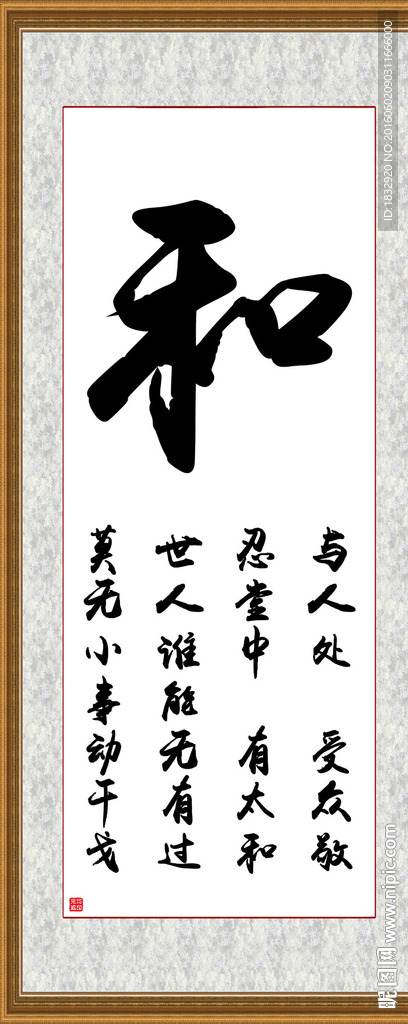 和
与人处 受众敬
忍堂中 有太和
世人谁能无有过
莫无小事动干戈
ID:1832920 NO:20160602090311666000
昵图网 www.nipic.com